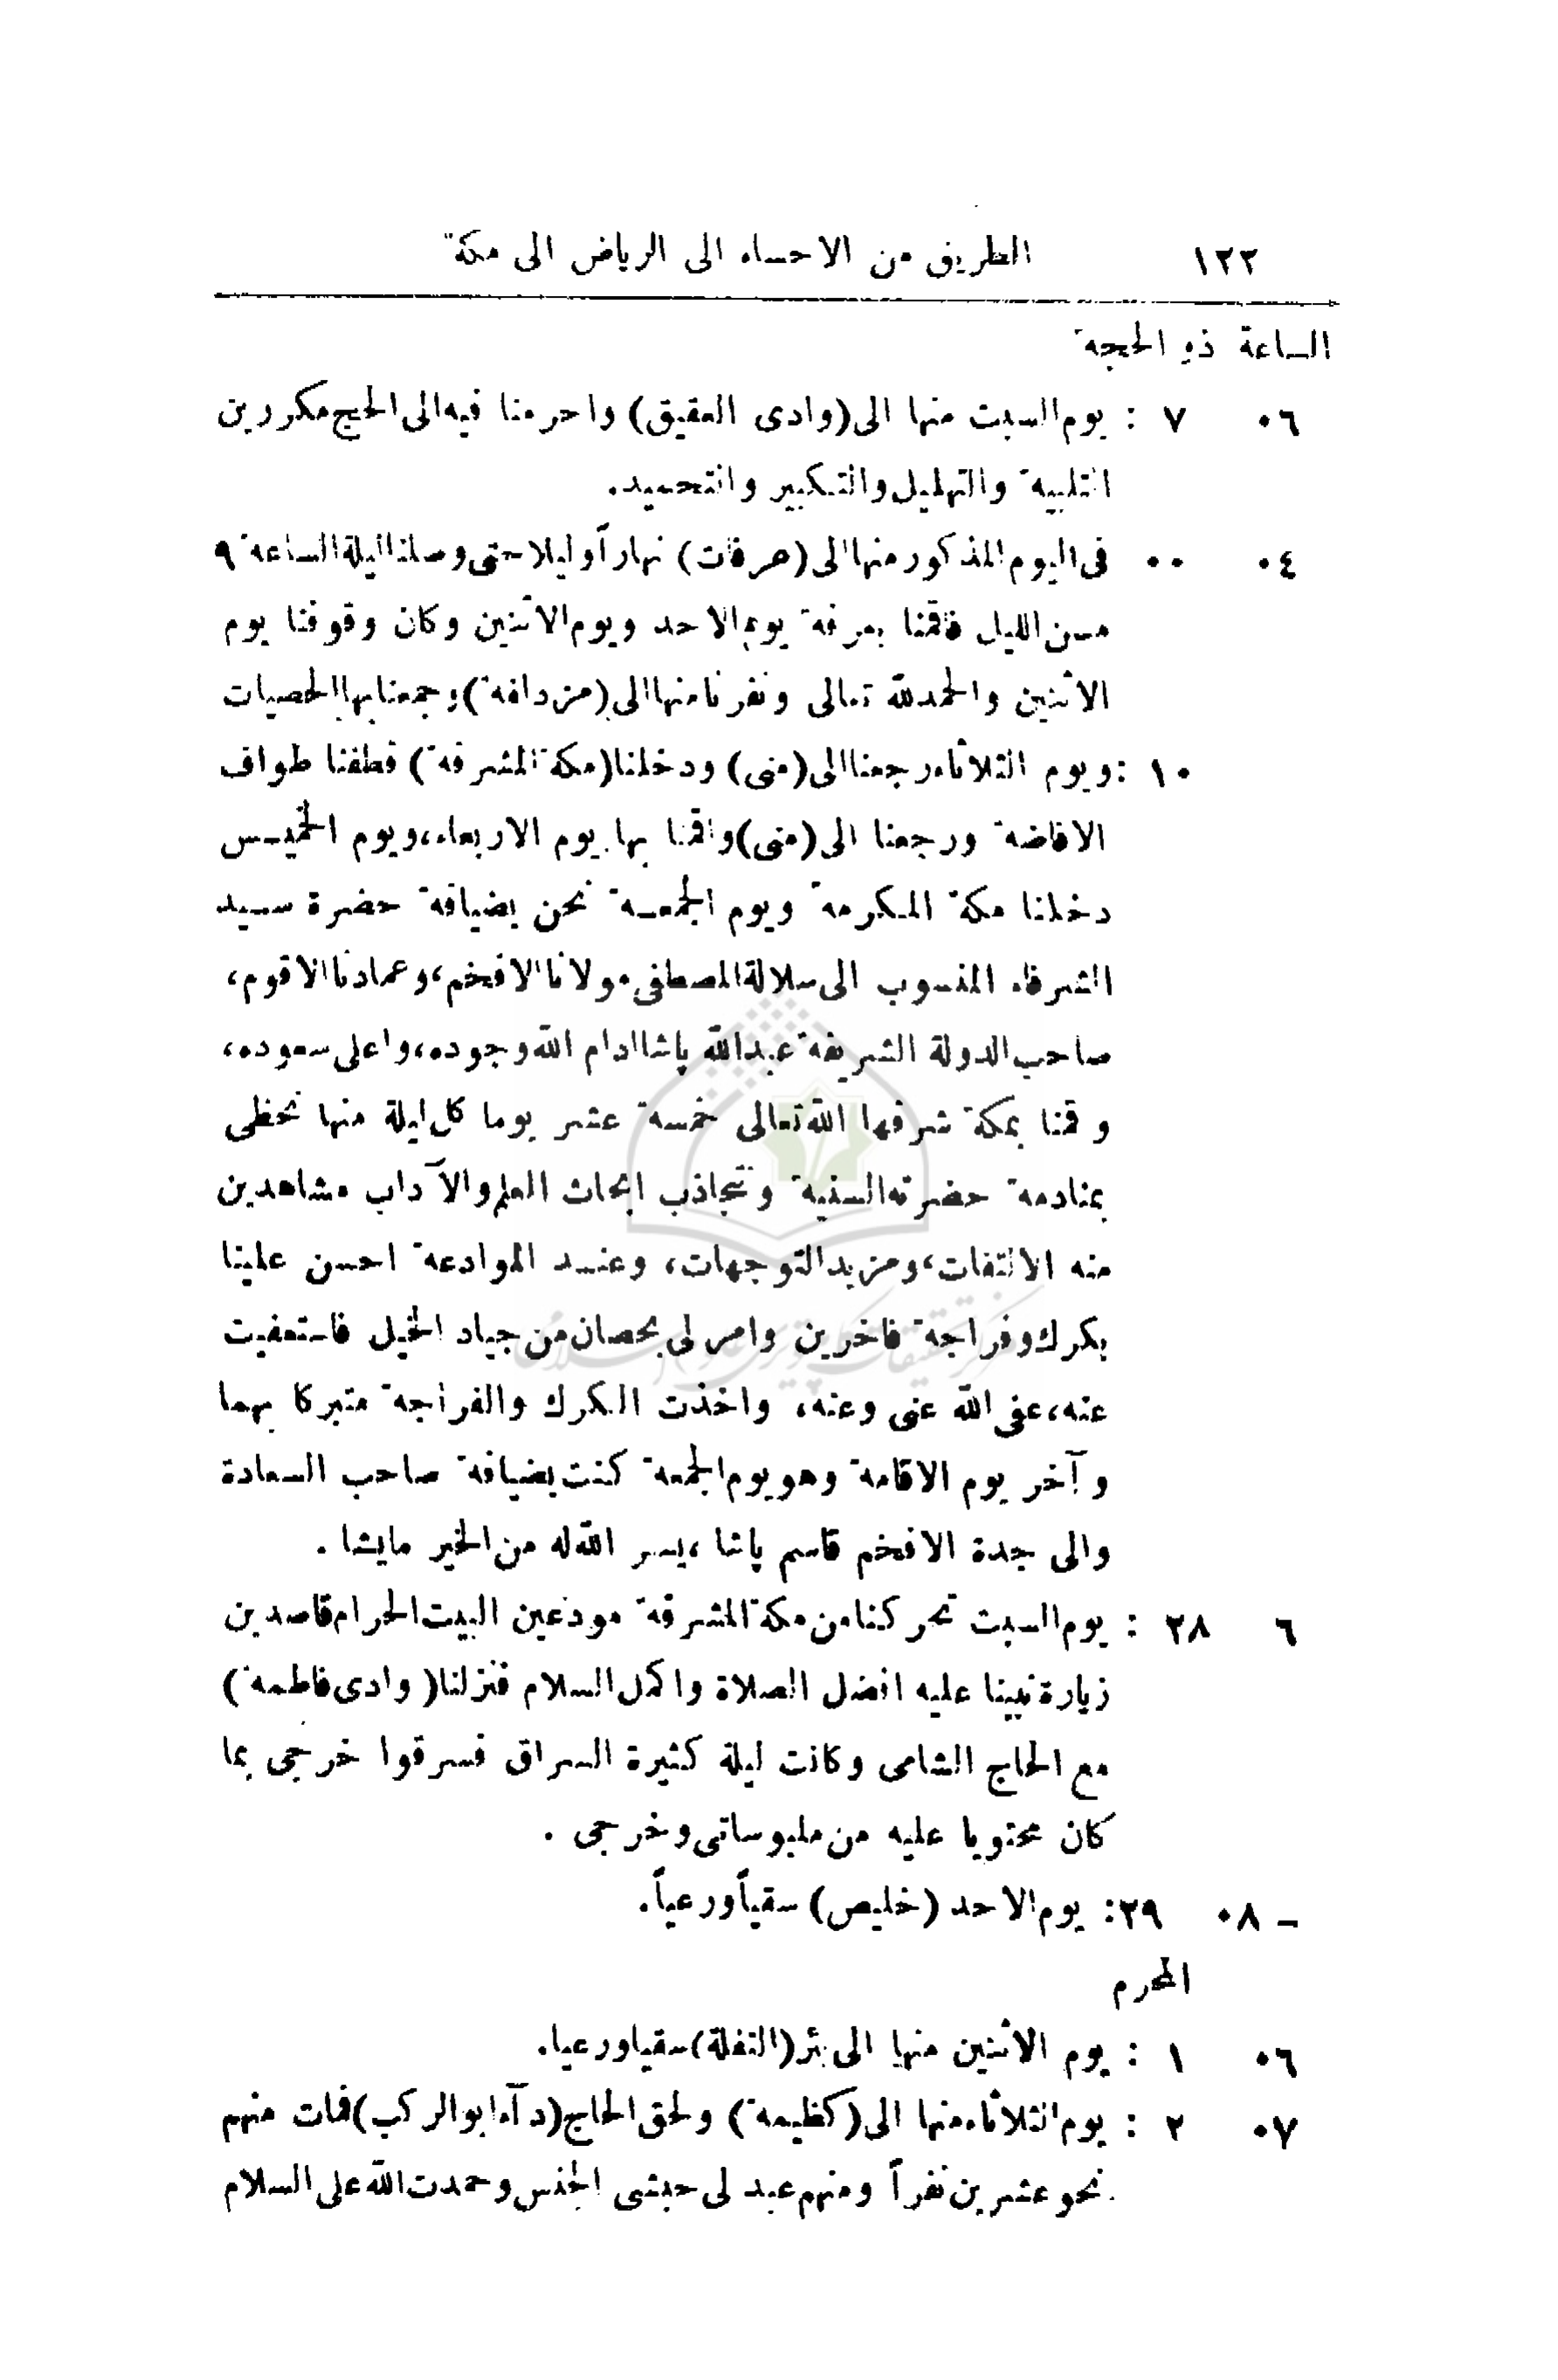 ١٢٢ الطريق من الاحساء الى الرياض الى مكة
الساعة ذو الحجة
٠٦ ٧ : يوم السبت منها الى (وادى العقيق) واحرمنا فيه الى الحج مكررين
التلبية والتهليل والتكبير والتحميد.
٠٤ ٠٠ فى اليوم المذكور منها الى (عرفات) نهاراً وليلا حتى وصلنا ليلة الساعة ٩
من الليل فاقمنا بعرفة يوم الاحد ويوم الاثنين وكان وقوفنا يوم
الاثنين والحمد لله تعالى ونفرنا منها الى (مزدلفة) وجمعنا بها الحصيات
١٠ : ويوم الثلاثاء رجعنا الى (منى) ودخلنا (مكة المشرفة) فطفنا طواف
الافاضة ورجعنا الى (منى) واقمنا بها يوم الاربعاء، ويوم الخميس
دخلنا مكة المكرمة ويوم الجمعة نحن بضيافة حضرة سيد
الشرفاء المنسوب الى سلالة المصطفى مولانا الافخم، وعمادنا الاقوم،
صاحب الدولة الشريفة عبدالله پاشا ادام الله وجوده، واعلى سعوده،
وقمنا بمكة شرفها الله تعالى خمسة عشر يوما كل ليلة منها نحظى
بمنادمة حضرته السنية ونتجاذب ابحاث العلم والآداب مشاهدين
منه الالتفات، ومزيد التوجهات، وعند الموادعة احسن علينا
بكرك وفراجة فاخرين وامر لى بحصان من جياد الخيل فاستعفيت
عنه، عفى الله عنى وعنه، واخذت الكرك والفراجة متبركا بهما
وآخر يوم الاقامة وهو يوم الجمعة كنت بضيافة صاحب السعادة
والى جدة الافخم قاسم پاشا، يسر الله له من الخير مايشا .
٦ ٢٨ : يوم السبت تحركنا من مكة المشرفة مودعين البيت الحرام قاصدين
زيارة نبينا عليه افضل الصلاة واكمل السلام فنزلنا (وادى فاطمة)
مع الحاج الشامى وكانت ليلة كثيرة السراق فسرقوا خرجى بما
كان محتويا عليه من ملبوساتى وخرجى .
ـ ٠٨ ٢٩: يوم الاحد (خليص) سقياً ورعياً.
المحرم
٠٦ ١ : يوم الاثنين منها الى بئر (التفلة) سقيا ورعيا.
٠٧ ٢ : يوم الثلاثاء منها الى (كظيمة) ولحق الحاج (دآء ابو الركب) فمات منهم
نحو عشرين نفراً ومنهم عبد لى حبشى الجنس وحمدت الله على السلام